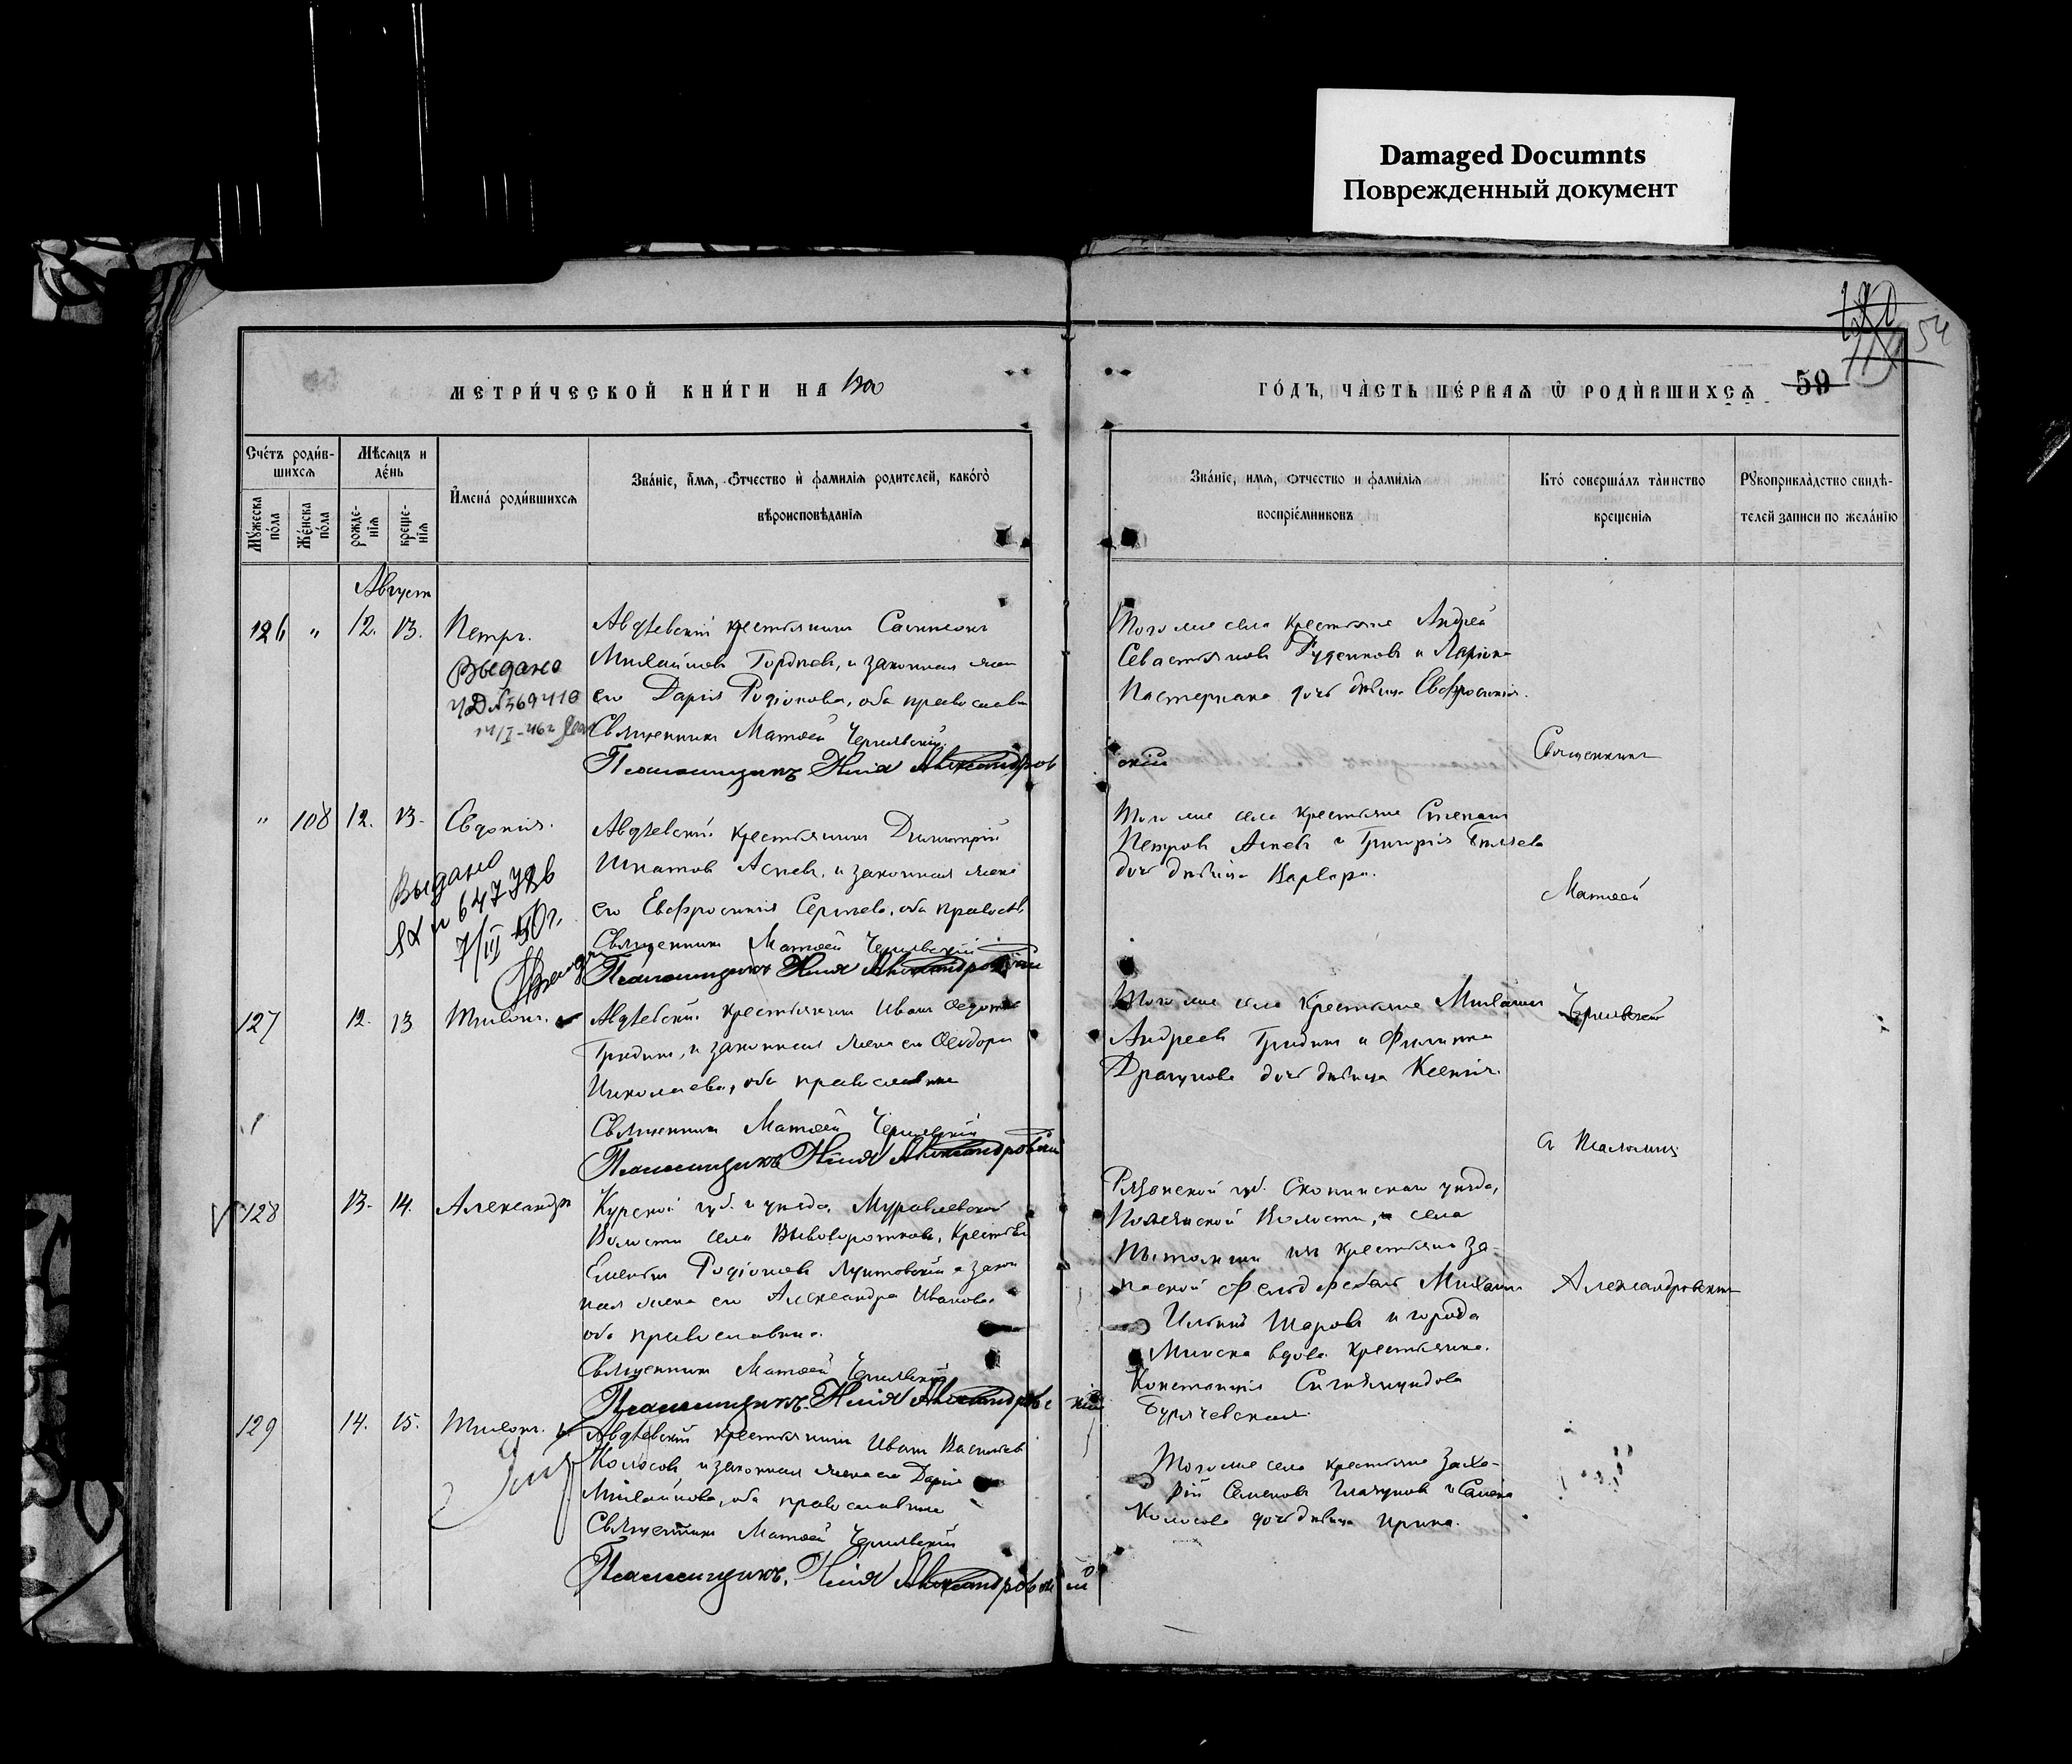 Damaged Documnts
Поврежденный документ
54
МЕТРИ́ЧЕСКОЙ КНИ́ГИ НА 1900
ГО́ДЪ, ЧА̀СТЬ ПЕ́РВАѦ Ѿ РОДИ́ВШИХСѦ 59
Сче́тъ роди́в-
шихсѧ
Мꙋ́жеска по́ла
Же́нска по́ла
Мѣ́сѧцъ и
де́нь
рожде-
нїѧ
креще-
нїѧ
И҆мена́ роди́вшихсѧ
Зва́нїе, и҆́мѧ, ѻ҆́тчество и҆ фами́лїѧ роди́телей, како́гѡ
вѣроисповѣ́данїѧ
Зва́нїе, имѧ, ѻтчество и фами́лїѧ
воспрїе́мниковъ
Кто́ соверша́лъ та́инство
креще́нїѧ
Рꙋкоприкла́дство свидѣ́-
телей записи по жела́нїю
Августъ
126 " 12. 13. Петръ.
Выдано
14/I-46г
Авдѣевскій крестьянинъ
Михайловъ Гордѣевъ, и законная жена
его Дарія Родіонова, оба православн
Священникъ Матѳей Чернявскій
Псаломщикъ Илія Александров
скій
Того же села крестьяне Андрей
Севастьяновъ Руденковъ и Ларіона
Пастернака дочь дѣвица Евфросинія.
Священникъ
" 108 12. 13. Евдокія.
Выдано
7/III 50г.
Авдѣевскій крестьянинъ Димитрій
Игнатовъ Аспевъ, и законная жена
его Евфросинія Сергѣева, оба правосл
Священникъ Матѳей Чернявскій
Псаломщикъ Илія Александровскій
Того же села крестьяне Степанъ
Петровъ Аспевъ и Григорія Бѣляева
дочь дѣвица Варвара.
Матѳей
127 12. 13 Тихонъ.
Авдѣевскій крестьянинъ Иванъ Ѳедотовъ
Гридинъ, и законная жена его Ѳеодора
Николаева, оба православные
Священникъ Матѳей Чернявскій
Псаломщикъ Илія Александровскій
Того же села крестьяне Михаилъ
Андреевъ Гридинъ и Филиппа
Драгунова дочь дѣвица Ксенія.
Чернявскій
и Псаломщ
128 13. 14. Александръ
Курской губ. и уѣзда, Муравлевской
Волости села Выводоротнова, Крестьян
Емельянъ Родіоновъ и закон
ная жена его Александра Иванова
оба православные.
Священникъ Матѳей Чернявскій
Псаломщикъ Илія Александровскій
Рязанской губ. Скопинскаго уѣзда,
Волости, села
изъ крестьянъ за-
пасной Фельдфебель Михаилъ
Ильинъ Шаровъ и города
Минска вдова крестьянина
Констанція Сигизмундова
Александровскій
129 14. 15. Тихонъ.
Авдѣевскій крестьянинъ Иванъ Васильевъ
Колосовъ и законная жена его Дарія
Михайлова, оба православные
Священникъ Матѳей Чернявскій
Псаломщикъ Илія Александровскій
Того же села крестьяне Заха-
рій Семеновъ и Семена
Колосова дочь дѣвица Ирина.